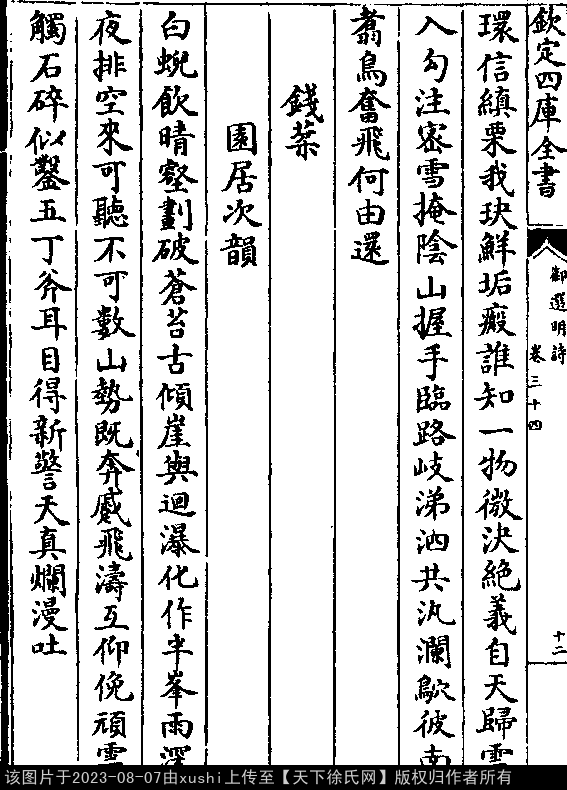 欽定四庫全書
御選明詩
卷三十四
十二
環信縝栗我玦鮮垢瘢誰知一物微決絕義自天歸雲
入勾注密雪掩陰山握手臨路歧涕泗共汍瀾歇彼南
翥鳥奮飛何由還
錢棻
園居次韻
白蜺飲晴壑劃破蒼苔古傾崖與迴瀑化作半峯雨深
夜排空來可聽不可數山勢既奔蹙飛濤互仰俛頑雲
觸石碎似鑿五丁斧耳目得新警天真爛漫吐
该图片于2023-08-07由xushi上传至【天下徐氏网】版权归作者所有